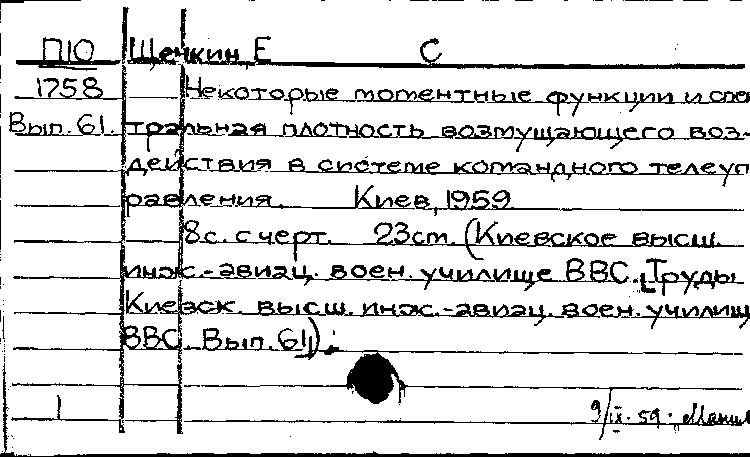 П10 Щечкин, Е С
1758 Некоторые моментные функции и спек
Вып. 61. тральная плотность возмущающего воз-
действия в системе командного телеуп
равления. Киев, 1959
8с. с черт. 23см. (Киевское высш.
инж.-авиац. воен. училище ВВС. [Труды
Киевск. высш. инж.-авиац. воен. училищ
ВВС. Вып. 61]).
1 9/IX-59.